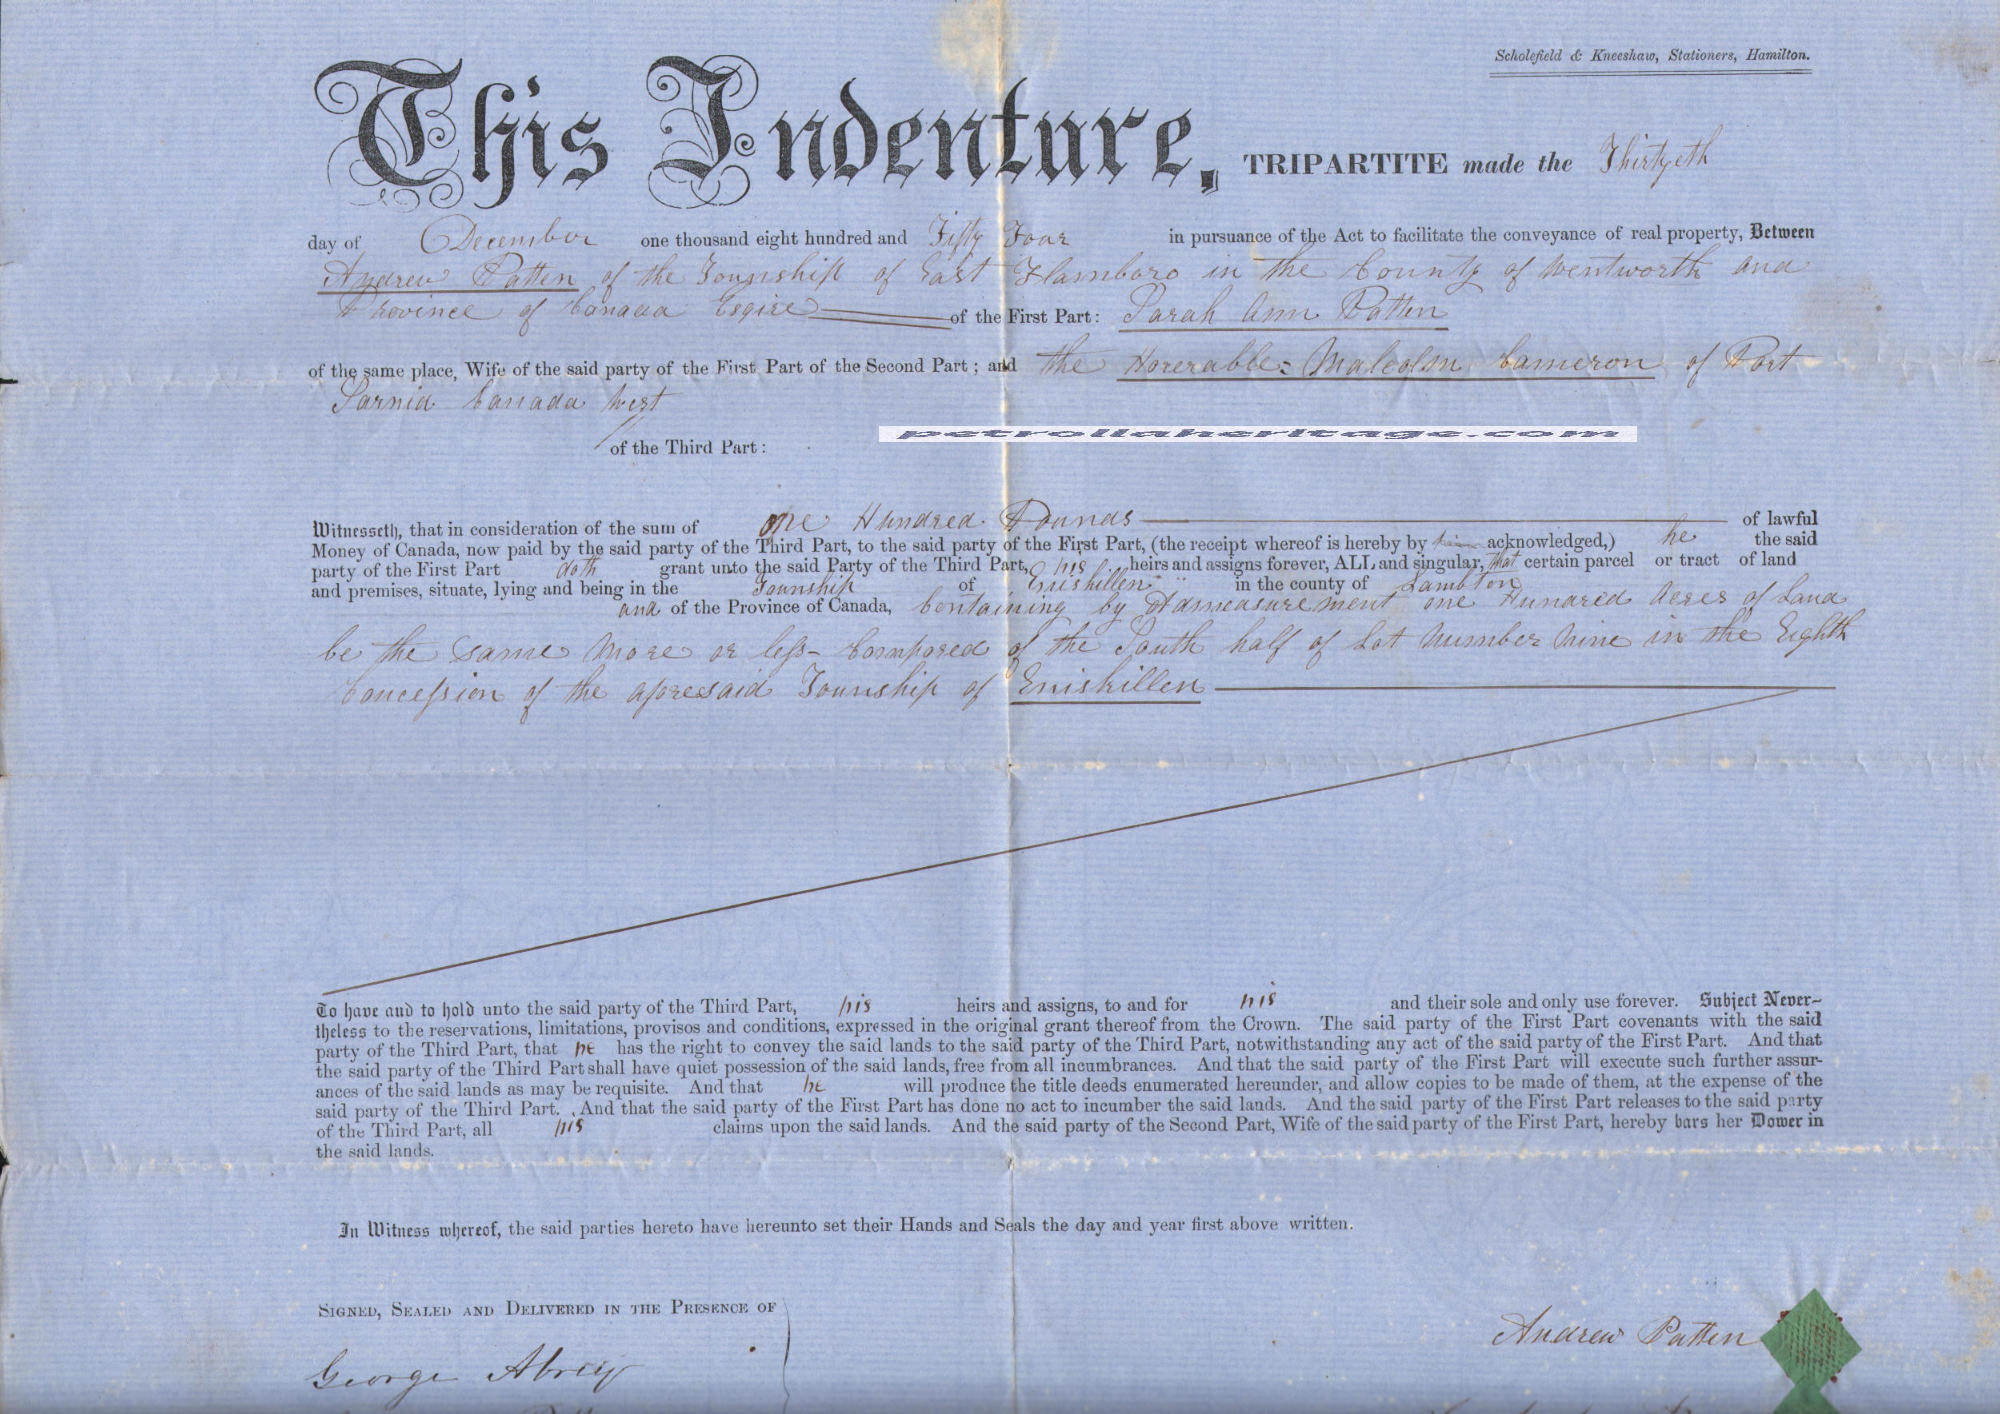 Scholefield & Kneeshaw, Stationers, Hamilton.
This Indenture, TRIPARTITE made the Thirtyeth
day of December one thousand eight hundred and Fifty Four in pursuance of the Act to facilitate the conveyance of real property, Between
Andrew Patten of the Township of East Flamboro in the County of Wentworth and
Province of Canada Esqire of the First Part: Sarah Ann Patten
of the same place, Wife of the said party of the First Part of the Second Part; and the Honerable Malcolm Cameron of Port
Sarnia Canada West
of the Third Part:
petroliaheritage.com
Witnesseth, that in consideration of the sum of One Hundred Pounds of lawful
Money of Canada, now paid by the said party of the Third Part, to the said party of the First Part, (the receipt whereof is hereby by him acknowledged,) he the said
party of the First Part doth grant unto the said Party of the Third Part, his heirs and assigns forever, ALL and singular, that certain parcel or tract of land
and premises, situate, lying and being in the Township of Eniskillen in the county of Lambton
and of the Province of Canada, Containing by Admeasurement one Hundred Acres of Land
be the same More or less - Composed of the South half of Lot Number Nine in the Eighth
Concession of the aforesaid Township of Eniskillen
To have and to hold unto the said party of the Third Part, his heirs and assigns, to and for his and their sole and only use forever. Subject Never-
theless to the reservations, limitations, provisos and conditions, expressed in the original grant thereof from the Crown. The said party of the First Part covenants with the said
party of the Third Part, that he has the right to convey the said lands to the said party of the Third Part, notwithstanding any act of the said party of the First Part. And that
the said party of the Third Part shall have quiet possession of the said lands, free from all incumbrances. And that the said party of the First Part will execute such further assur-
ances of the said lands as may be requisite. And that he will produce the title deeds enumerated hereunder, and allow copies to be made of them, at the expense of the
said party of the Third Part. And that the said party of the First Part has done no act to incumber the said lands. And the said party of the First Part releases to the said party
of the Third Part, all his claims upon the said lands. And the said party of the Second Part, Wife of the said party of the First Part, hereby bars her Dower in
the said lands.
In Witness whereof, the said parties hereto have hereunto set their Hands and Seals the day and year first above written.
SIGNED, SEALED AND DELIVERED IN THE PRESENCE OF
Andrew Patten
George Abrey